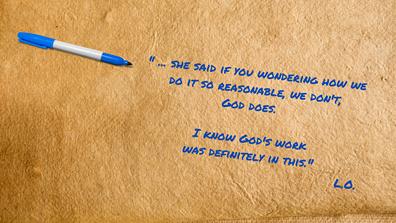 "... she said if you wondering how we
do it so reasonable, we don't,
God does.
I know God's work
was definitely in this."
L.O.